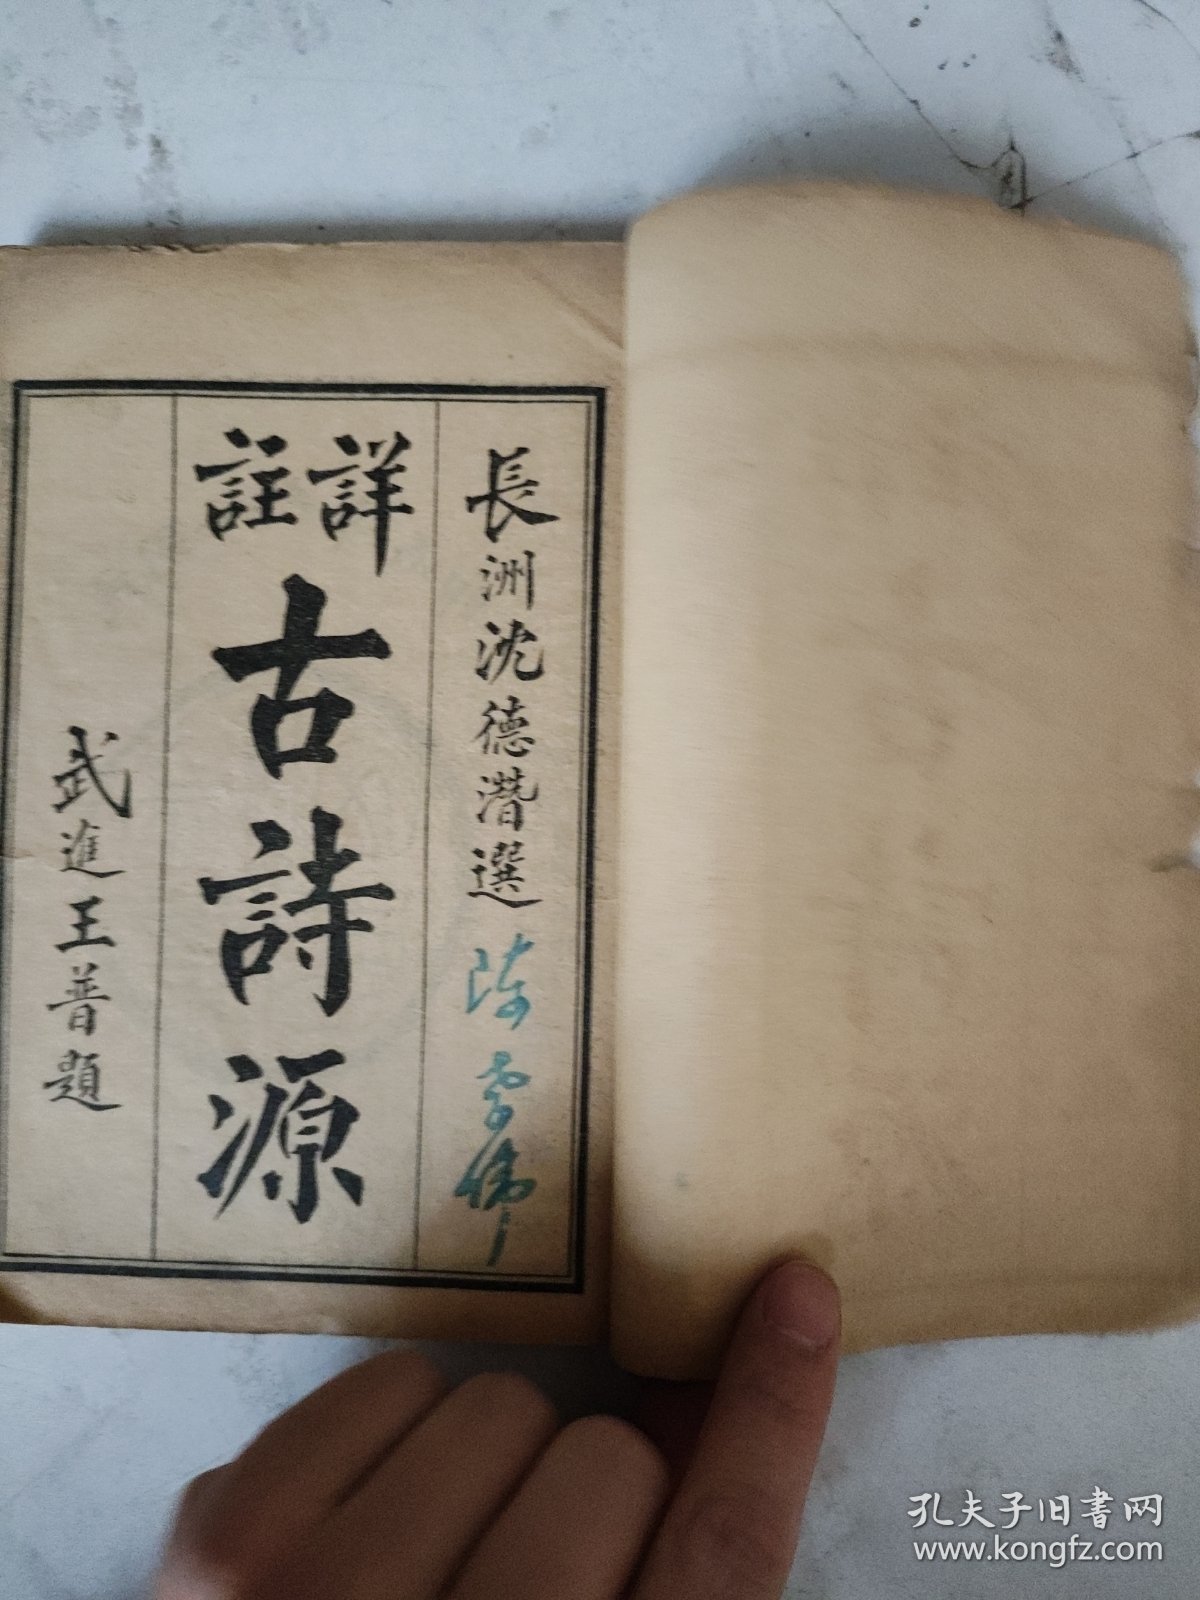 長洲沈德潛選
詳註
古詩源
武進王普題
孔夫子旧書网
www.kongfz.com